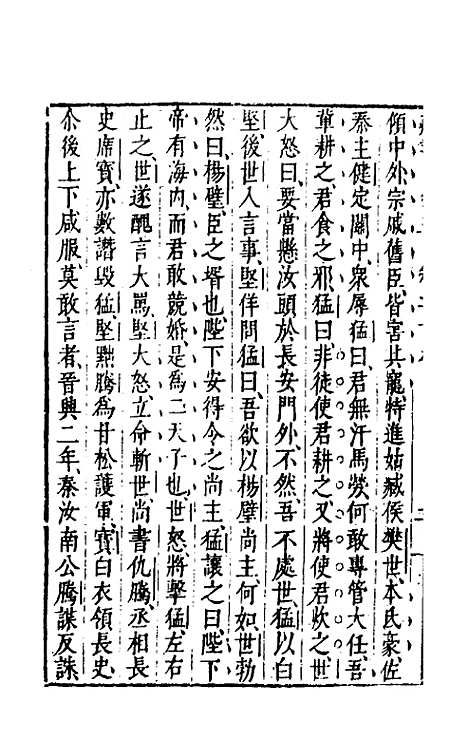 傾中外宗戚舊臣皆害其寵特進姑臧侯樊世本氐豪佐
秦主健定關中衆辱猛曰君無汗馬勞何敢專管大任吾
輩耕之君食之邪猛曰非徒使君耕之又將使君炊之世
大怒曰要當懸汝頭於長安門外不然吾不處世猛以白
堅後世入言事堅佯問猛曰吾欲以楊璧尚主何如世勃
然曰楊璧臣之壻也陛下安得令之尚主猛讓之曰陛下
帝有海內而君敢競婚是爲二天子也世怒將擊猛左右
止之世遂醜言大罵堅大怒立命斬世尚書仇騰丞相長
史席寶亦數譖毀猛堅黜騰爲甘松護軍寶白衣領長史
尒後上下咸服莫敢言者晉興二年秦汝南公騰謀反誅